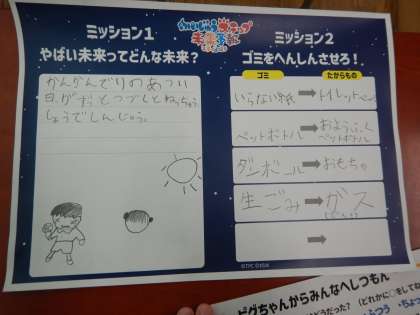 ミッション1
やばい未来ってどんな未来?
かんかんでりのあつい
日がずっとつづくとねっちゅう
しょうでしんじゃう。
ミッション2
ゴミをへんしんさせろ!
ゴミ
たからもの
いらない紙 ➡ トイレットペーパー
ペットボトル ➡ おようふく
ペットボトル
ダンボール ➡ おもちゃ
生ごみ ➡ ガス
➡
ピグちゃんからみんなへしつもん